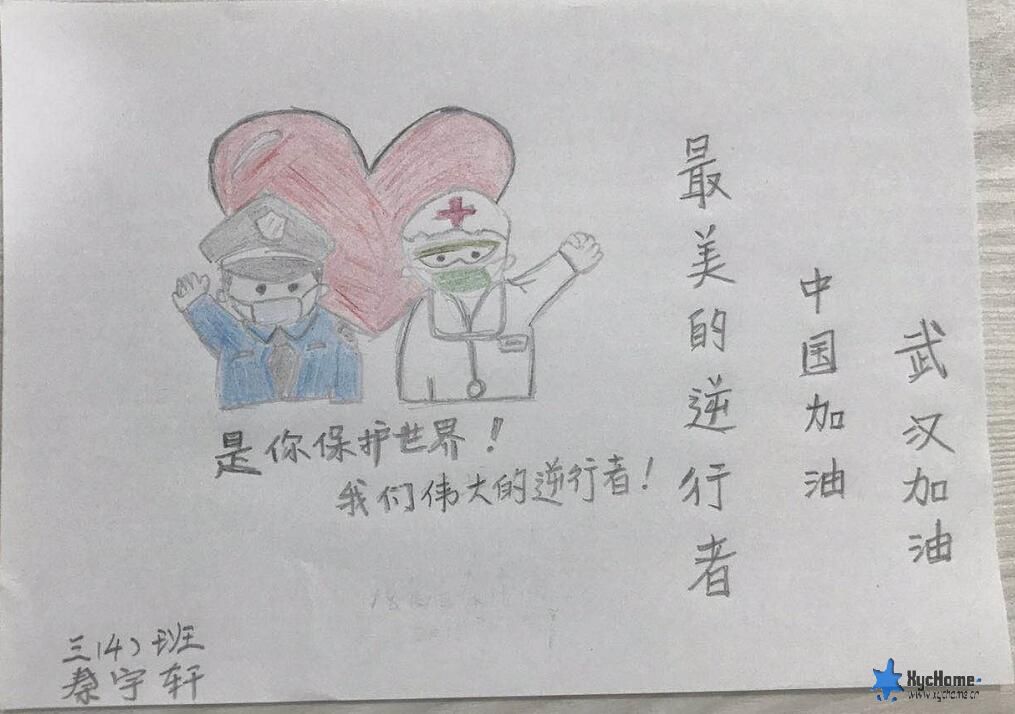 武汉加油
中国加油
最美的逆行者
是你保护世界！
我们伟大的逆行者！
三(4)班
秦宇轩
XycHome
www.xychome.cn